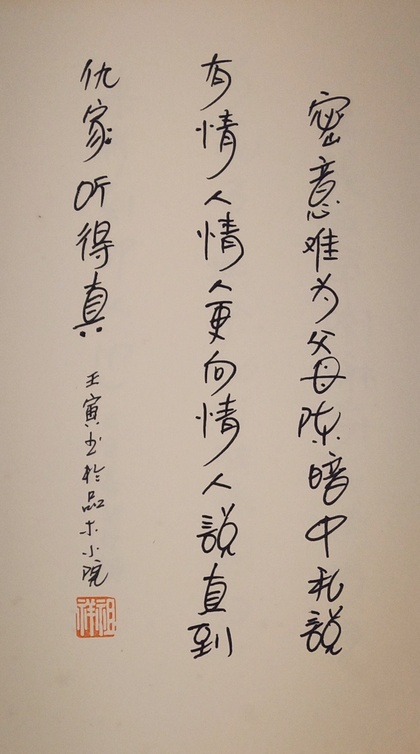 密意难为父母陈暗中私說
有情人情人更向情人說直到
仇家听得真
壬寅书於品木小院